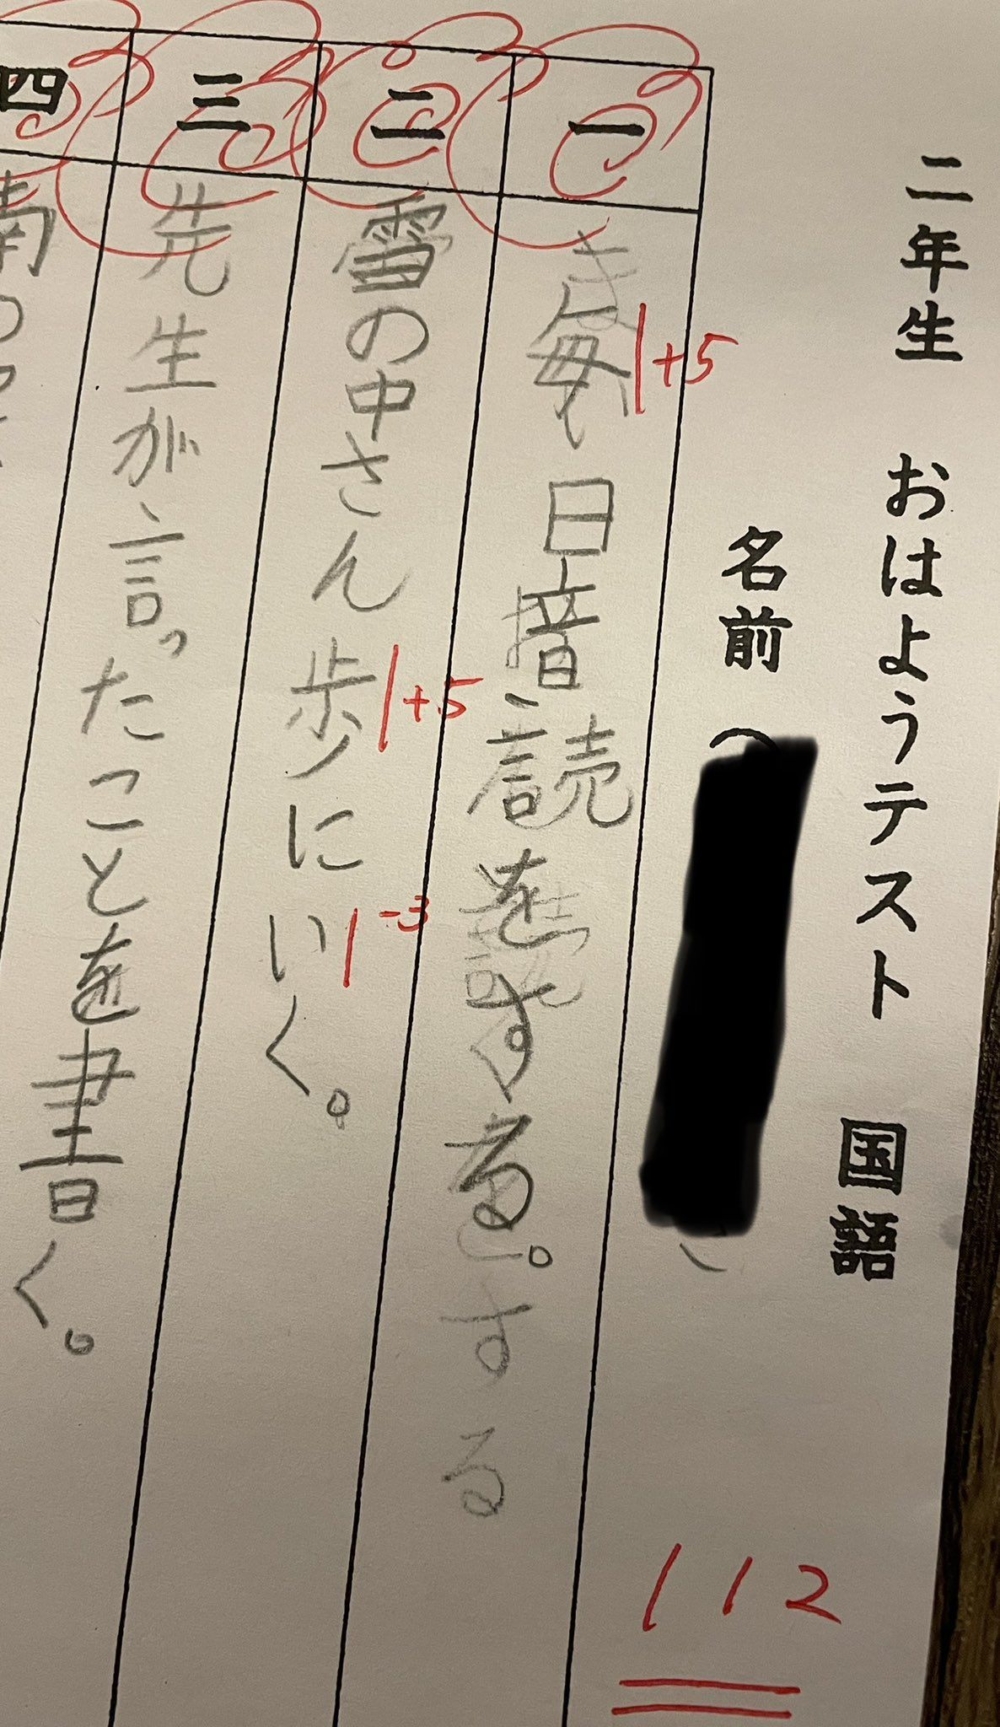 二年生 おはようテスト 国語
名前（ ）
112
一
毎日音読をする。
する
+5
二
雪の中さん歩にいく。
+5
-3
三
先生が言ったことを書く。
四
南